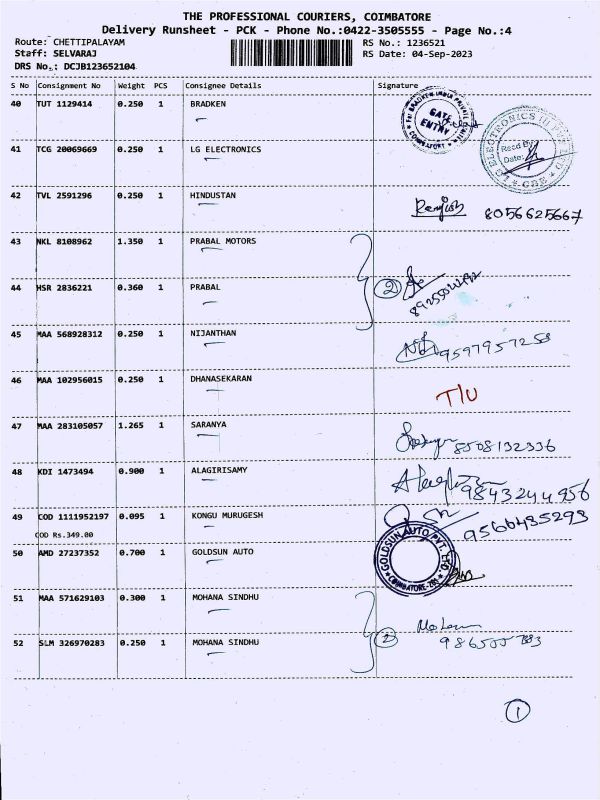 THE PROFESSIONAL COURIERS, COIMBATORE
Delivery Runsheet - PCK - Phone No.:0422-3505555 - Page No.:4
Route: CHETTIPALAYAM RS No.: 1236521
Staff: SELVARAJ RS Date: 04-Sep-2023
DRS No.: DCJB123652104
S No Consignment No Weight PCS Consignee Details Signature
40 TUT 1129414 0.250 1 BRADKEN
GATE ENTRY
41 TCG 20069669 0.250 1 LG ELECTRONICS
Recd By:
Date:
42 TVL 2591296 0.250 1 HINDUSTAN 8056625667
43 NKL 8108962 1.350 1 PRABAL MOTORS
44 HSR 2836221 0.360 1 PRABAL 2
45 MAA 568928312 0.250 1 NIJANTHAN 9597957258
46 MAA 102956015 0.250 1 DHANASEKARAN T/U
47 MAA 283105057 1.265 1 SARANYA 8508132336
48 KDI 1473494 0.900 1 ALAGIRISAMY 9843244956
49 COD 1111952197 0.095 1 KONGU MURUGESH 9566435293
COD Rs.349.00
50 AMD 27237352 0.700 1 GOLDSUN AUTO
GOLDSUN AUTO PVT. LTD
51 MAA 571629103 0.300 1 MOHANA SINDHU
52 SLM 326970283 0.250 1 MOHANA SINDHU 2
1